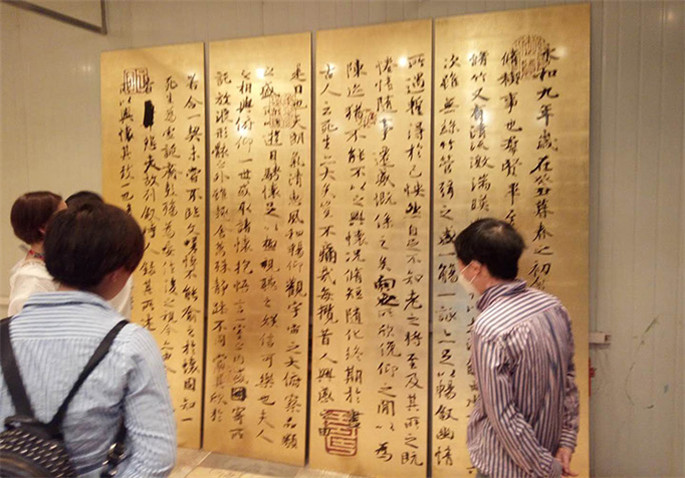 永和九年歲在癸丑暮春之初
脩禊事也羣賢畢至
脩竹又有清流激湍暎
次雖無絲竹管弦之盛一觴一詠亦足以暢敘幽情
所遇蹔得於己怏然自足不知老之將至及其所之既
惓情隨事遷感慨係之矣向之所欣俛仰之間以為
陳迹猶不能不以之興懷況脩短隨化終期於盡
古人云死生亦大矣豈不痛哉每攬昔人興感之由
是日也天朗氣清惠風和暢仰觀宇宙之大俯察品類
之盛所以遊目騁懷足以極視聽之娛信可樂也夫人
之相與俯仰一世或取諸懷抱悟言一室之內或因寄所
託放浪形骸之外雖趣舍萬殊靜躁不同當其欣於
若合一契未嘗不臨文嗟悼不能喻之於懷固知一
死生為虛誕齊彭殤為妄作後之視今亦由
昔悲夫故列敘時人錄其所述
所以興懷其致一也